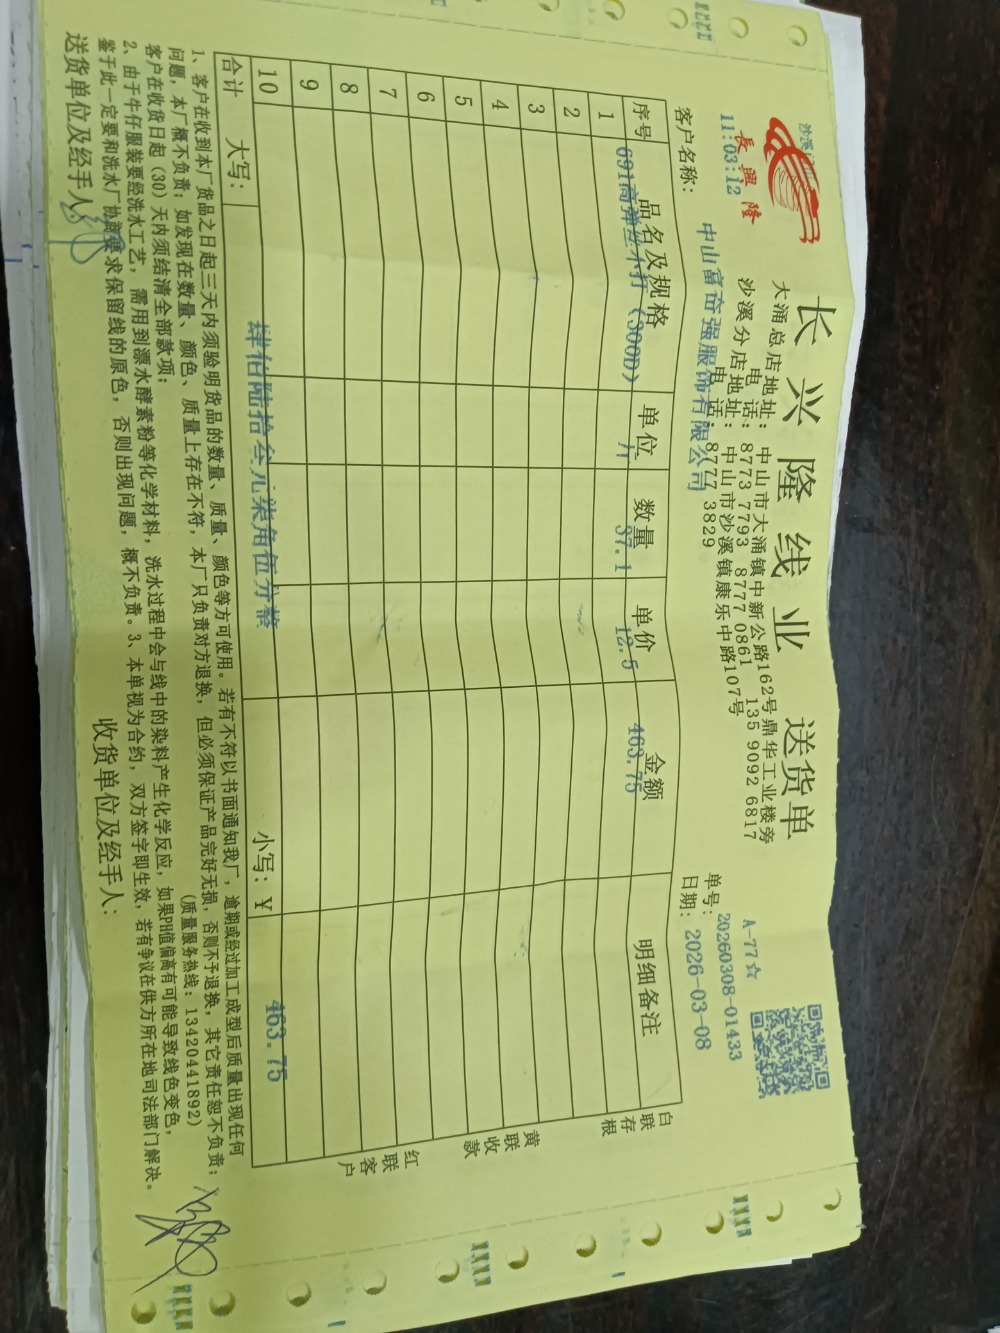 長興隆
11:03:12
长兴隆线业 送货单
大涌总店地址: 中山市大涌镇中新公路162号鼎华工业楼旁
电 话: 8773 7793 8777 0861 135 9092 6817
沙溪分店地址: 中山市沙溪镇康乐中路107号
电 话: 8777 3829
A-77☆
单号: 20260308-01433
日期: 2026-03-08
客户名称: 中山富奋强服饰有限公司
序号 品名及规格 单位 数量 单价 金额 明细备注
1 691高弹丝不打 (300D) 斤 37.1 12.5 463.75
2
3
4
5
6
7
8
9
10
合计 大写: 肆佰陆拾叁元柒角伍分整 小写: ¥ 463.75
白联存根
黄联收款
红联客户
1、客户在收到本厂货品之日起三天内须验明货品的数量、质量、颜色等方可使用。若有不符以书面通知我厂,逾期或经过加工成型后质量出现任何
问题,本厂概不负责;如发现在数量、颜色、质量上存在不符,本厂只负责对方退换,但必须保证产品完好无损,否则不予退换,其它责任恕不负责;
客户在收货日起(30)天内须结清全部款项; (质量服务热线: 13420441892)
2、由于牛仔服装要经洗水工艺,需用到漂水酵素粉等化学材料,洗水过程中会与线中的染料产生化学反应,如果PH值偏高有可能导致线色变色,
鉴于此一定要和洗水厂协商要求保留线的原色,否则出现问题,概不负责。3、本单视为合约,双方签字即生效,若有争议在供方所在地司法部门解决。
送货单位及经手人: 收货单位及经手人: